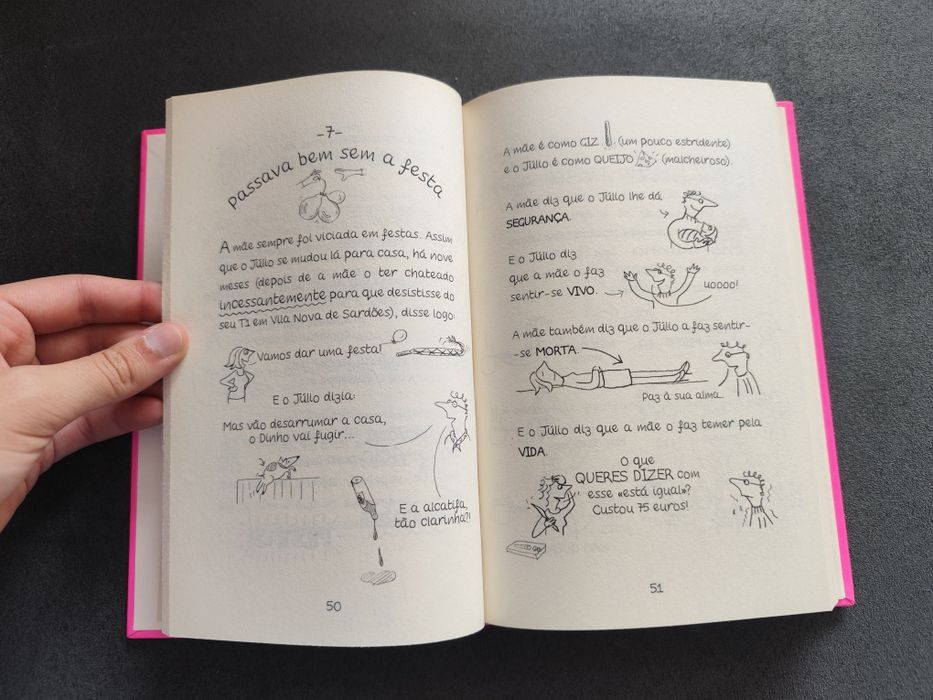 -7-
passava bem sem a festa
A mãe sempre foi viciada em festas. Assim
que o Júlio se mudou lá para casa, há nove
meses (depois de a mãe o ter chateado
incessantemente para que desistisse do
seu T1 em Vila Nova de Sardões), disse logo:
Vamos dar uma festa!
E o Júlio dizia:
Mas vão desarrumar a casa,
o Dinho vai fugir...
E a alcatifa,
tão clarinha?!
50
A mãe é como GIZ (um pouco estridente)
e o Júlio é como QUEIJO (malcheiroso).
A mãe diz que o Júlio lhe dá
SEGURANÇA.
E o Júlio diz
que a mãe o faz
sentir-se VIVO.
uoooo!
A mãe também diz que o Júlio a faz sentir-
-se MORTA.
Paz à sua alma.
E o Júlio diz que a mãe o faz temer pela
VIDA.
O que
QUERES DIZER com
esse «está igual»?
Custou 75 euros!
51